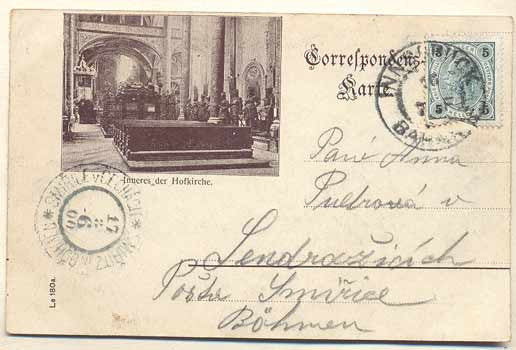 Correspondenz-
Karte.
5 5
5 5
INNSBRUCK
Inneres der Hofkirche.
Paní Anna
v
Sendražicích
Pošta Smiřice
Böhmen
17
6
00
La 180a.